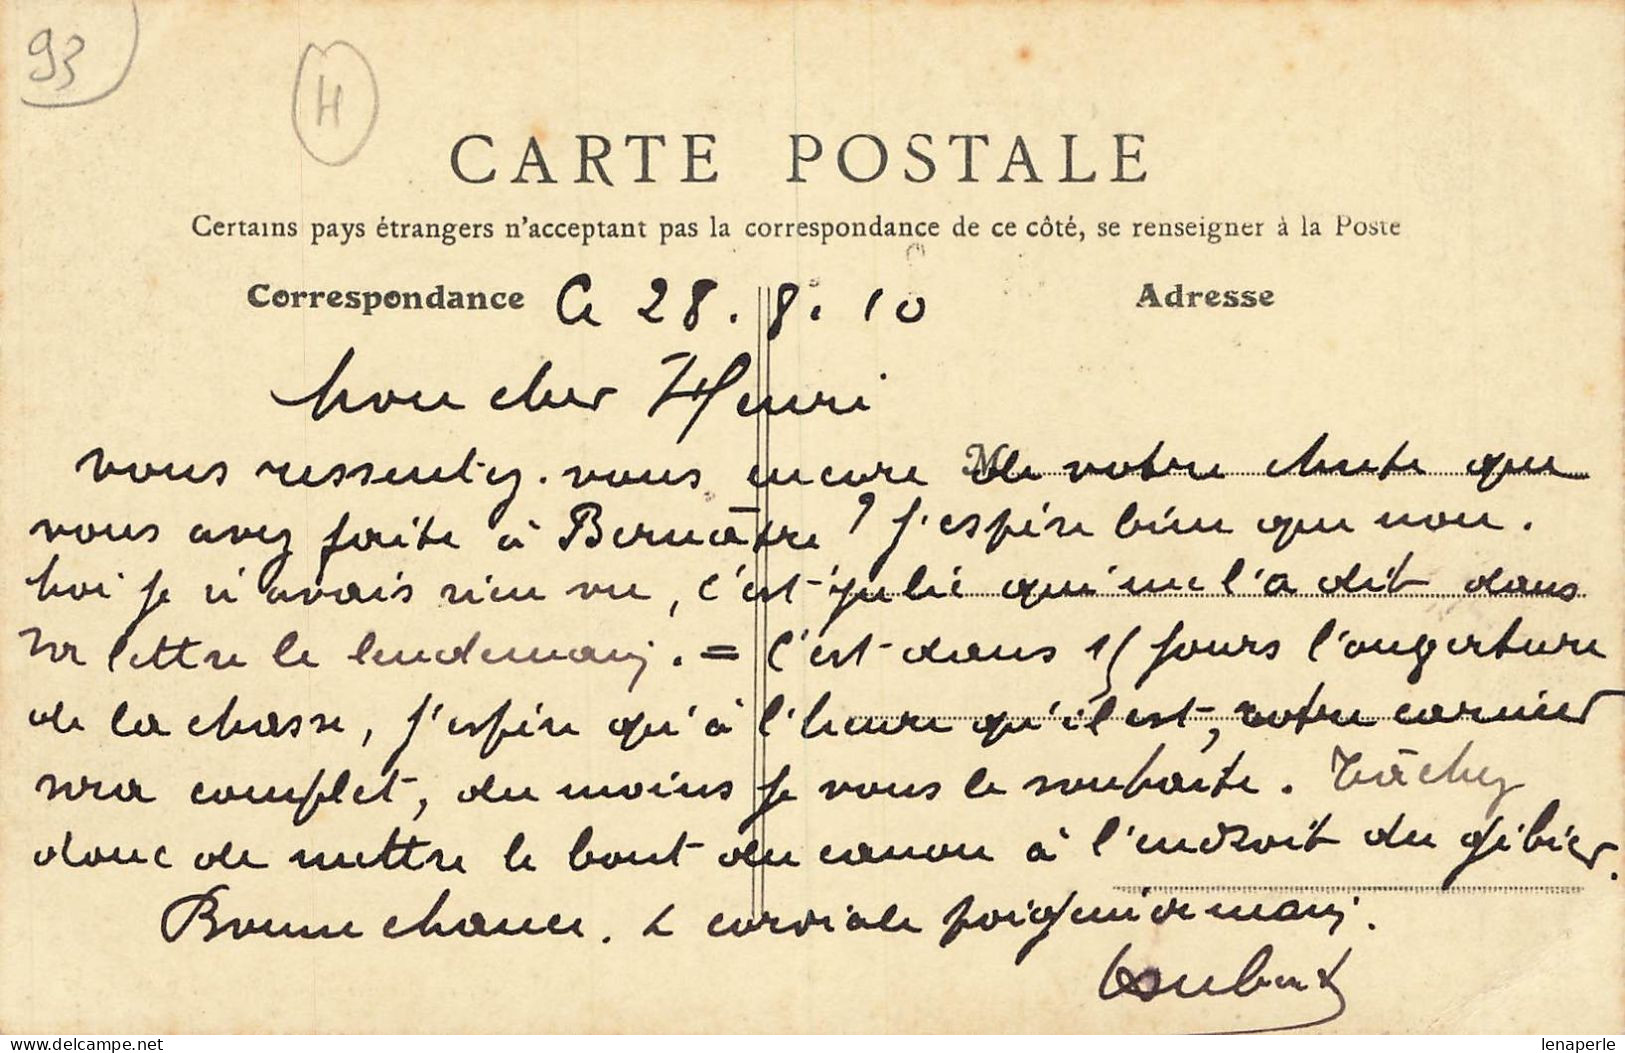 93
H
CARTE POSTALE
Certains pays étrangers n'acceptant pas la correspondance de ce côté, se renseigner à la Poste
Correspondance Ce 28.8.10 Adresse
Mon cher Henri
vous ressentez-vous encore de votre chute que
vous avez faite à Bernâtre ? J'espère bien que non.
Moi je n'avais rien vu, c'est Julie qui me l'a dit dans
sa lettre le lendemain. = C'est dans 15 jours l'ouverture
de la chasse, j'espère qu'à l'heure qu'il est, votre carnier
sera complet, du moins je vous le souhaite. Tâchez
donc de mettre le bout du canon à l'endroit du gibier.
Bonne chance. & cordiale poignée de main.
lenaperle